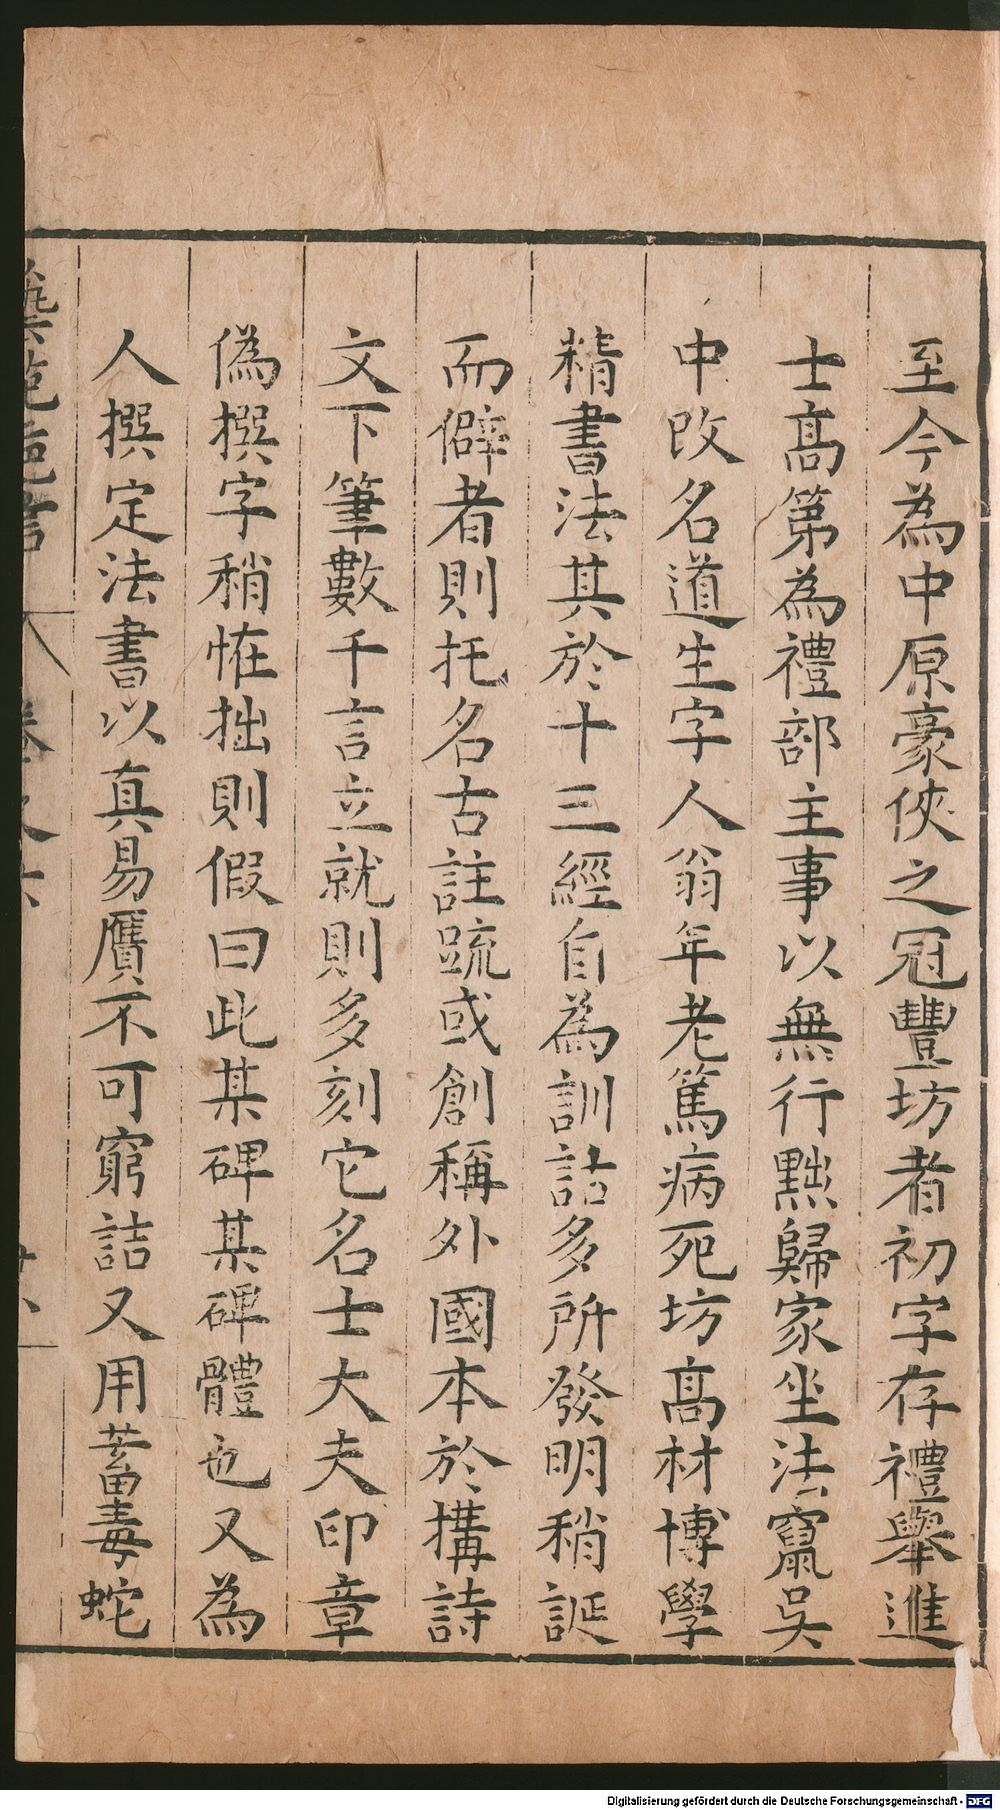 至今為中原豪俠之冠豐坊者初字存禮舉進
士高第為禮部主事以無行黜歸家坐法竄吳
中改名道生字人翁年老篤病死坊高材博學
精書法其於十三經自為訓詁多所發明稍誕
而僻者則托名古註疏或創稱外國本於搆詩
文下筆數千言立就則多刻它名士大夫印章
偽撰字稍恠拙則假曰此某碑某碑體也又為
人撰定法書以真易贗不可窮詰又用蓄毒蛇
Digitalisierung gefördert durch die Deutsche Forschungsgemeinschaft - DFG